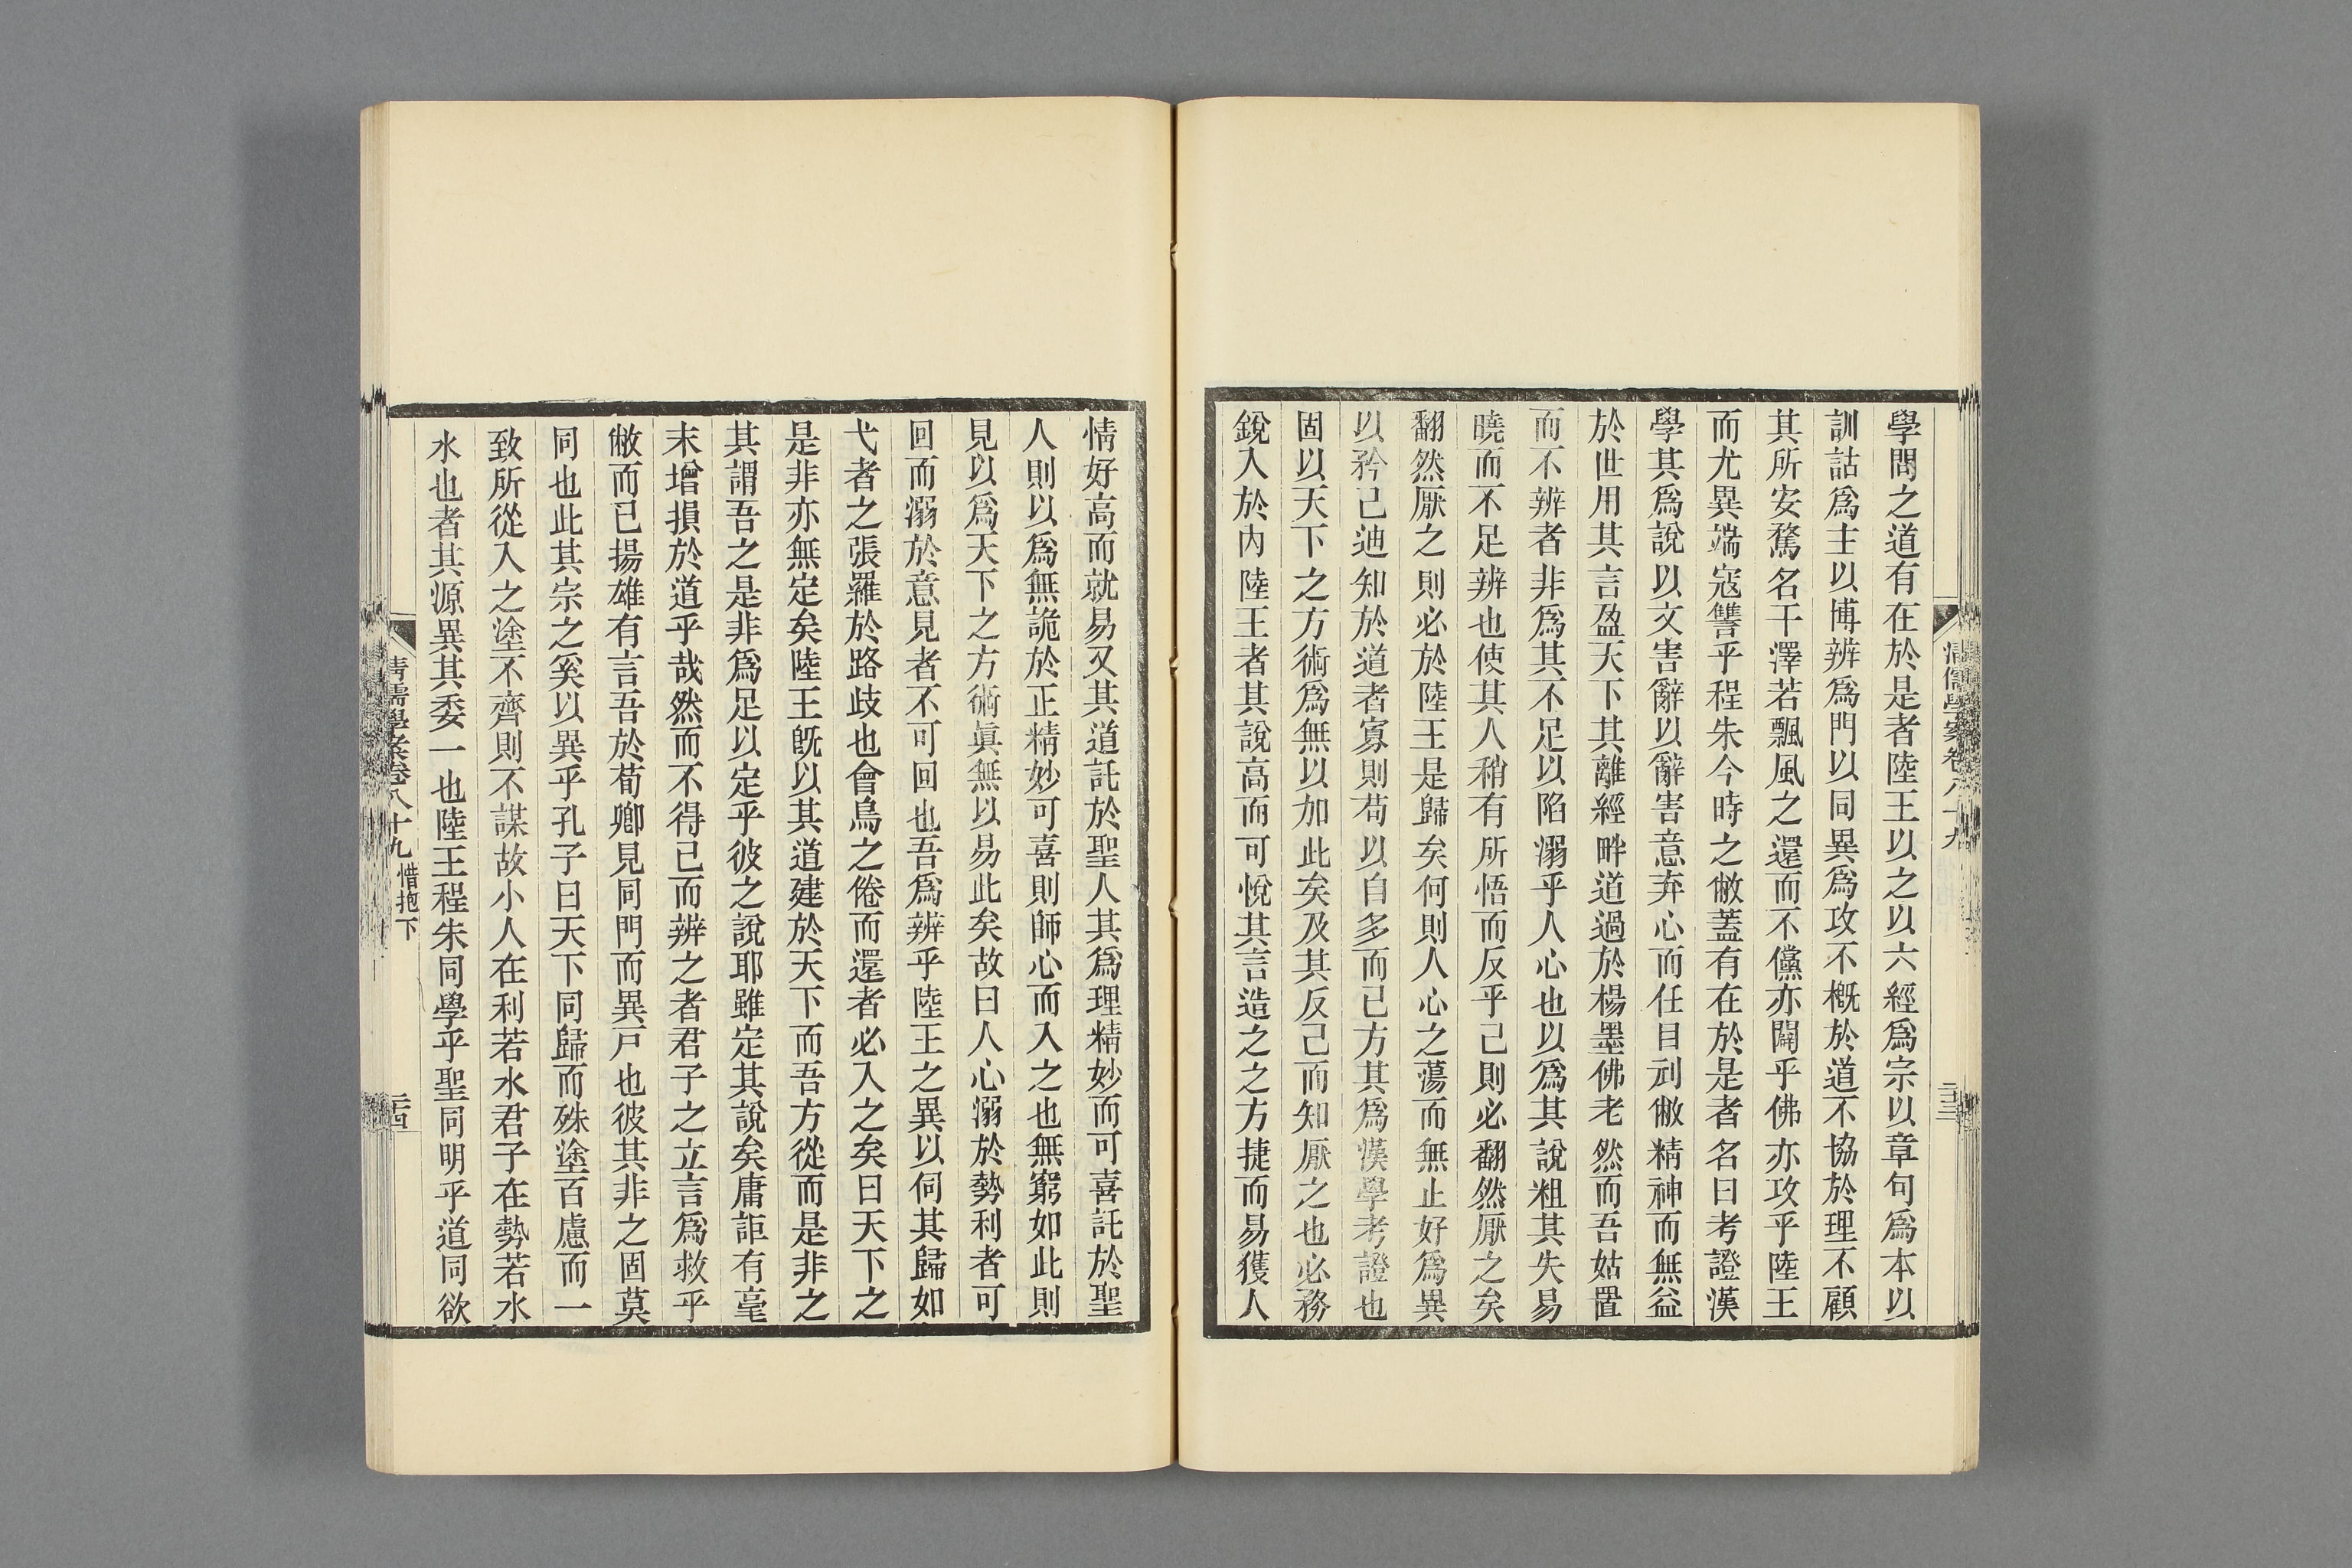 學問之道有在於是者陸王以之以六經爲宗以章句爲本以
訓詁爲主以博辨爲門以同異爲攻不概於道不協於理不顧
其所安騖名干澤若飄風之還而不儻亦闢乎佛亦攻乎陸王
而尤異端寇讐乎程朱今時之敝蓋有在於是者名曰考證漢
學其爲說以文害辭以辭害意弃心而任目刓敝精神而無益
於世用其言盈天下其離經畔道過於楊墨佛老然而吾姑置
而不辨者非爲其不足以陷溺乎人心也以爲其說粗其失易
曉而不足辨也使其人稍有所悟而反乎己則必翻然厭之矣
翻然厭之則必於陸王是歸矣何則人心之蕩而無止好爲異
以矜己迪知於道者寡則苟以自多而已方其爲漢學考證也
固以天下之方術爲無以加此矣及其反己而知厭之也必務
銳入於內陸王者其說高而可悅其言造之之方捷而易獲人
情好高而就易又其道託於聖人其爲理精妙而可喜託於聖
人則以爲無詭於正精妙可喜則師心而入之也無窮如此則
見以爲天下之方術眞無以易此矣故曰人心溺於勢利者可
回而溺於意見者不可回也吾爲辨乎陸王之異以伺其歸如
弋者之張羅於路歧也會鳥之倦而還者必入之矣曰天下之
是非亦無定矣陸王既以其道建於天下而吾方從而是非之
其謂吾之是非爲足以定乎彼之說耶雖定其說矣庸詎有毫
末增損於道乎哉然而不得已而辨之者君子之立言爲救乎
敝而已揚雄有言吾於荀卿見同門而異戶也彼其非之固莫
同也此其宗之奚以異乎孔子曰天下同歸而殊塗百慮而一
致所從入之塗不齊則不謀故小人在利若水君子在勢若水
水也者其源異其委一也陸王程朱同學乎聖同明乎道同欲
清儒學案卷八十九
三三
清儒學案卷八十九 惜抱下
三四